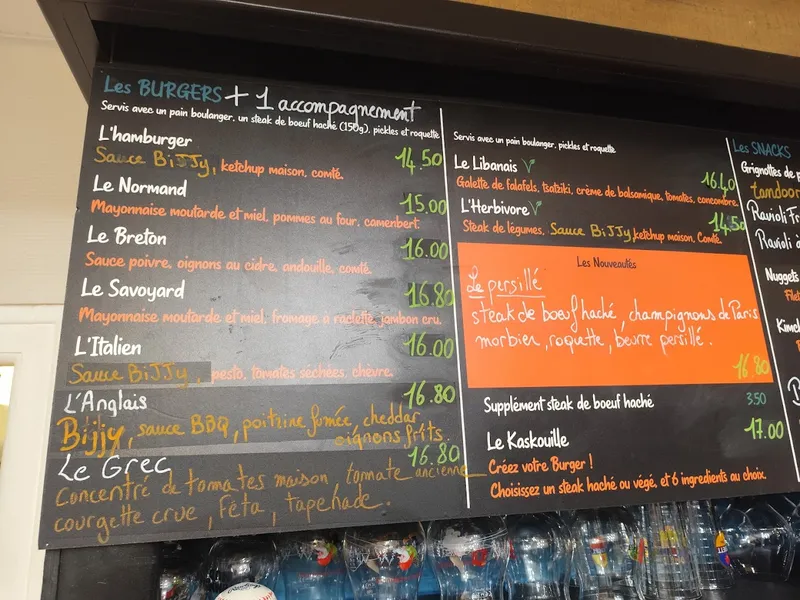 Les BURGERS + 1 accompagnement
Servis avec un pain boulanger, un steak de boeuf haché (150g), pickles et roquette
L'hamburger 14.50
Sauce BiJJy, ketchup maison, comté.
Le Normand 15.00
Mayonnaise moutarde et miel, pommes au four, camenbert.
Le Breton 16.00
Sauce poivre, oignons au cidre, andouille, comté.
Le Savoyard 16.80
Mayonnaise moutarde et miel, fromage à raclette, jambon cru.
L'Italien 16.00
Sauce BiJJy, pesto, tomates séchées, chèvre.
L'Anglais 16.80
Bijjy, sauce BBQ, poitrine fumée, cheddar
oignons frits.
Le Grec 16.80
Concentré de tomates maison, tomate ancienne
courgette crue, Feta, tapenade.
Servis avec un pain boulanger, pickles et roquette
Le Libanais 16.40
Galette de falafels, tzatziki, crème de balsamique, tomates, concombre
L'Herbivore 14.50
Steak de légumes, Sauce BiJJy, ketchup maison, Comté.
Les Nouveautés
Le persillé
steak de boeuf haché, champignons de Paris
morbier, roquette, beurre persillé.
16.80
Supplément steak de boeuf haché 3.50
Le Kaskouille 17.00
Créez votre Burger !
Choisissez un steak haché ou végé, et 6 ingredients au choix.
Les SNACKS
Grignottes de
tandoor
Ravioli
Ravioli
Nuggets